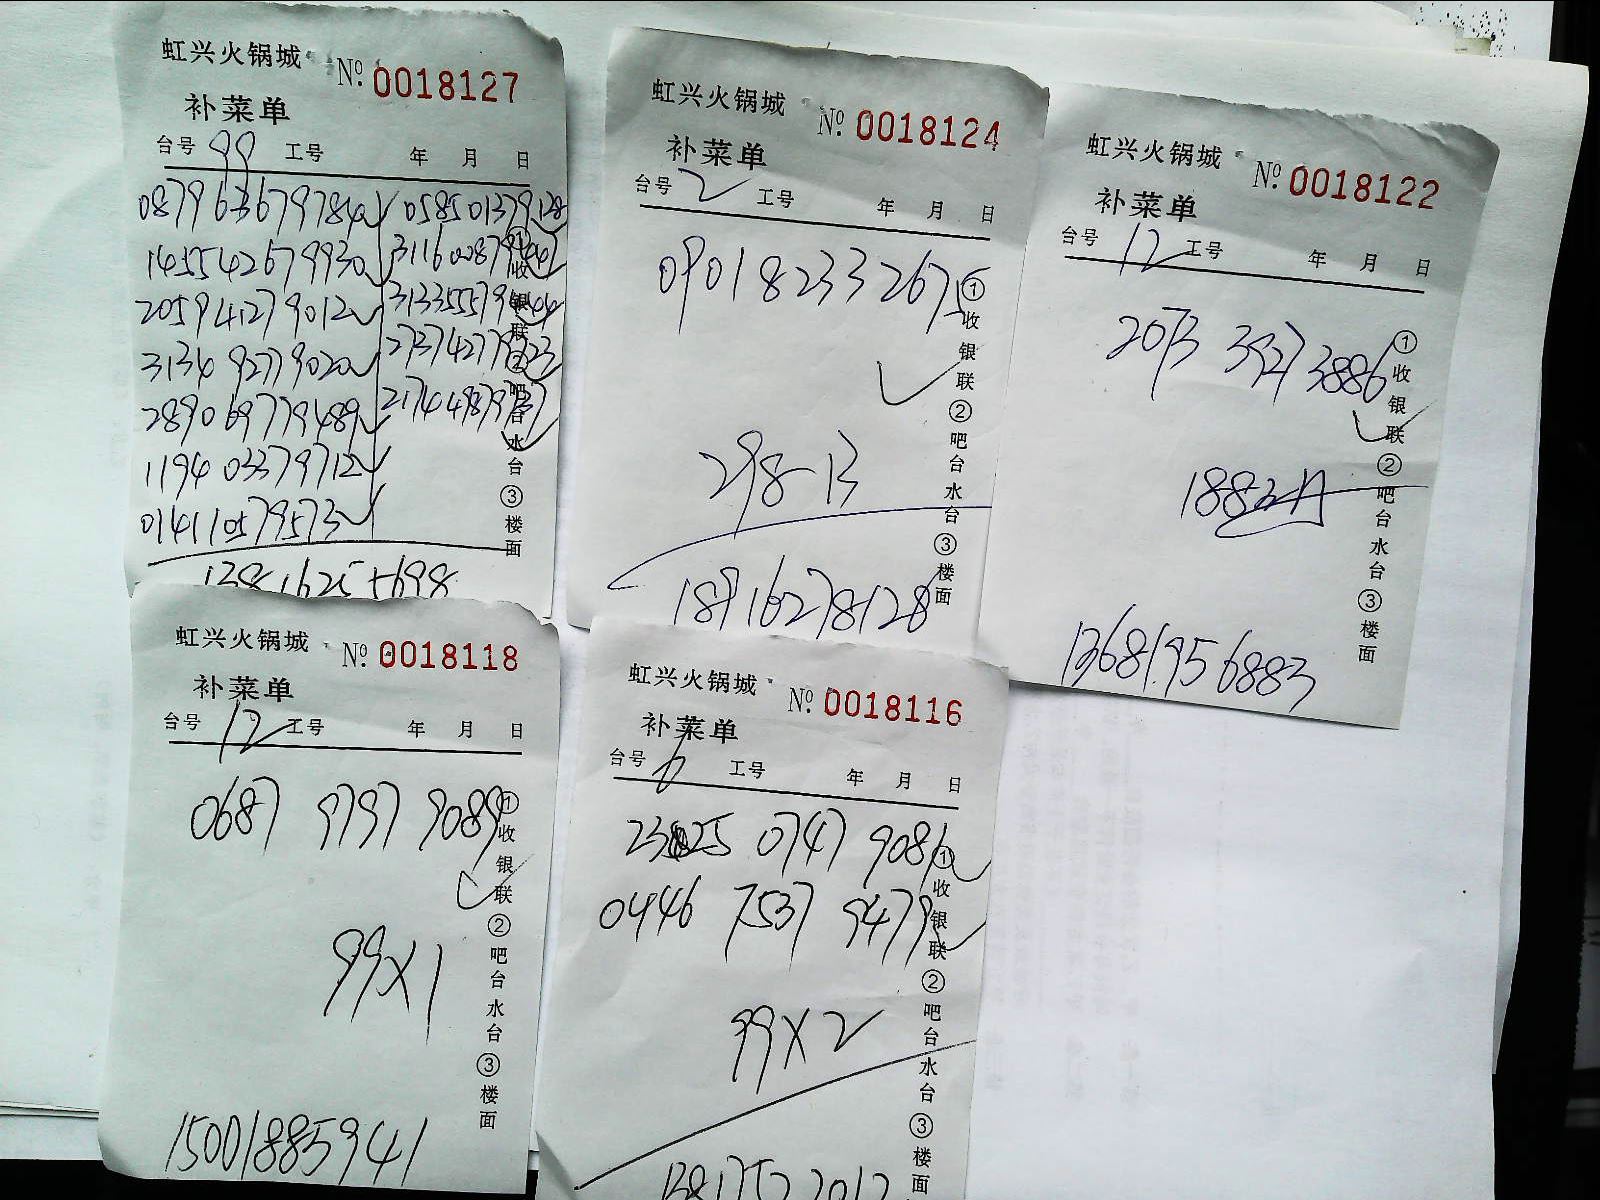 虹兴火锅城 № 0018127
补菜单
台号 99 工号 年 月 日
0879 6367 9784 0585 0137 9128
1455 4267 9930 3116 0087 9441
2059 4127 9012 3133 5557 9444
3134 9277 9020 2737 4277 9323
2890 6977 9489 2174 4987 9737
1194 0337 9712
0141 1057 9573
①收银联②吧台水台③楼面
虹兴火锅城 № 0018124
补菜单
台号 2 工号 年 月 日
0901 8233 2675
298-13
18916278128
①收银联②吧台水台③楼面
虹兴火锅城 № 0018122
补菜单
台号 12 工号 年 月 日
2073 3927 3886
13681956883
①收银联②吧台水台③楼面
虹兴火锅城 № 0018118
补菜单
台号 12 工号 年 月 日
0687 9797 9089
99X1
15001885941
①收银联②吧台水台③楼面
虹兴火锅城 № 0018116
补菜单
台号 6 工号 年 月 日
0747 9086
0446 7537 9479
99X2
①收银联②吧台水台③楼面